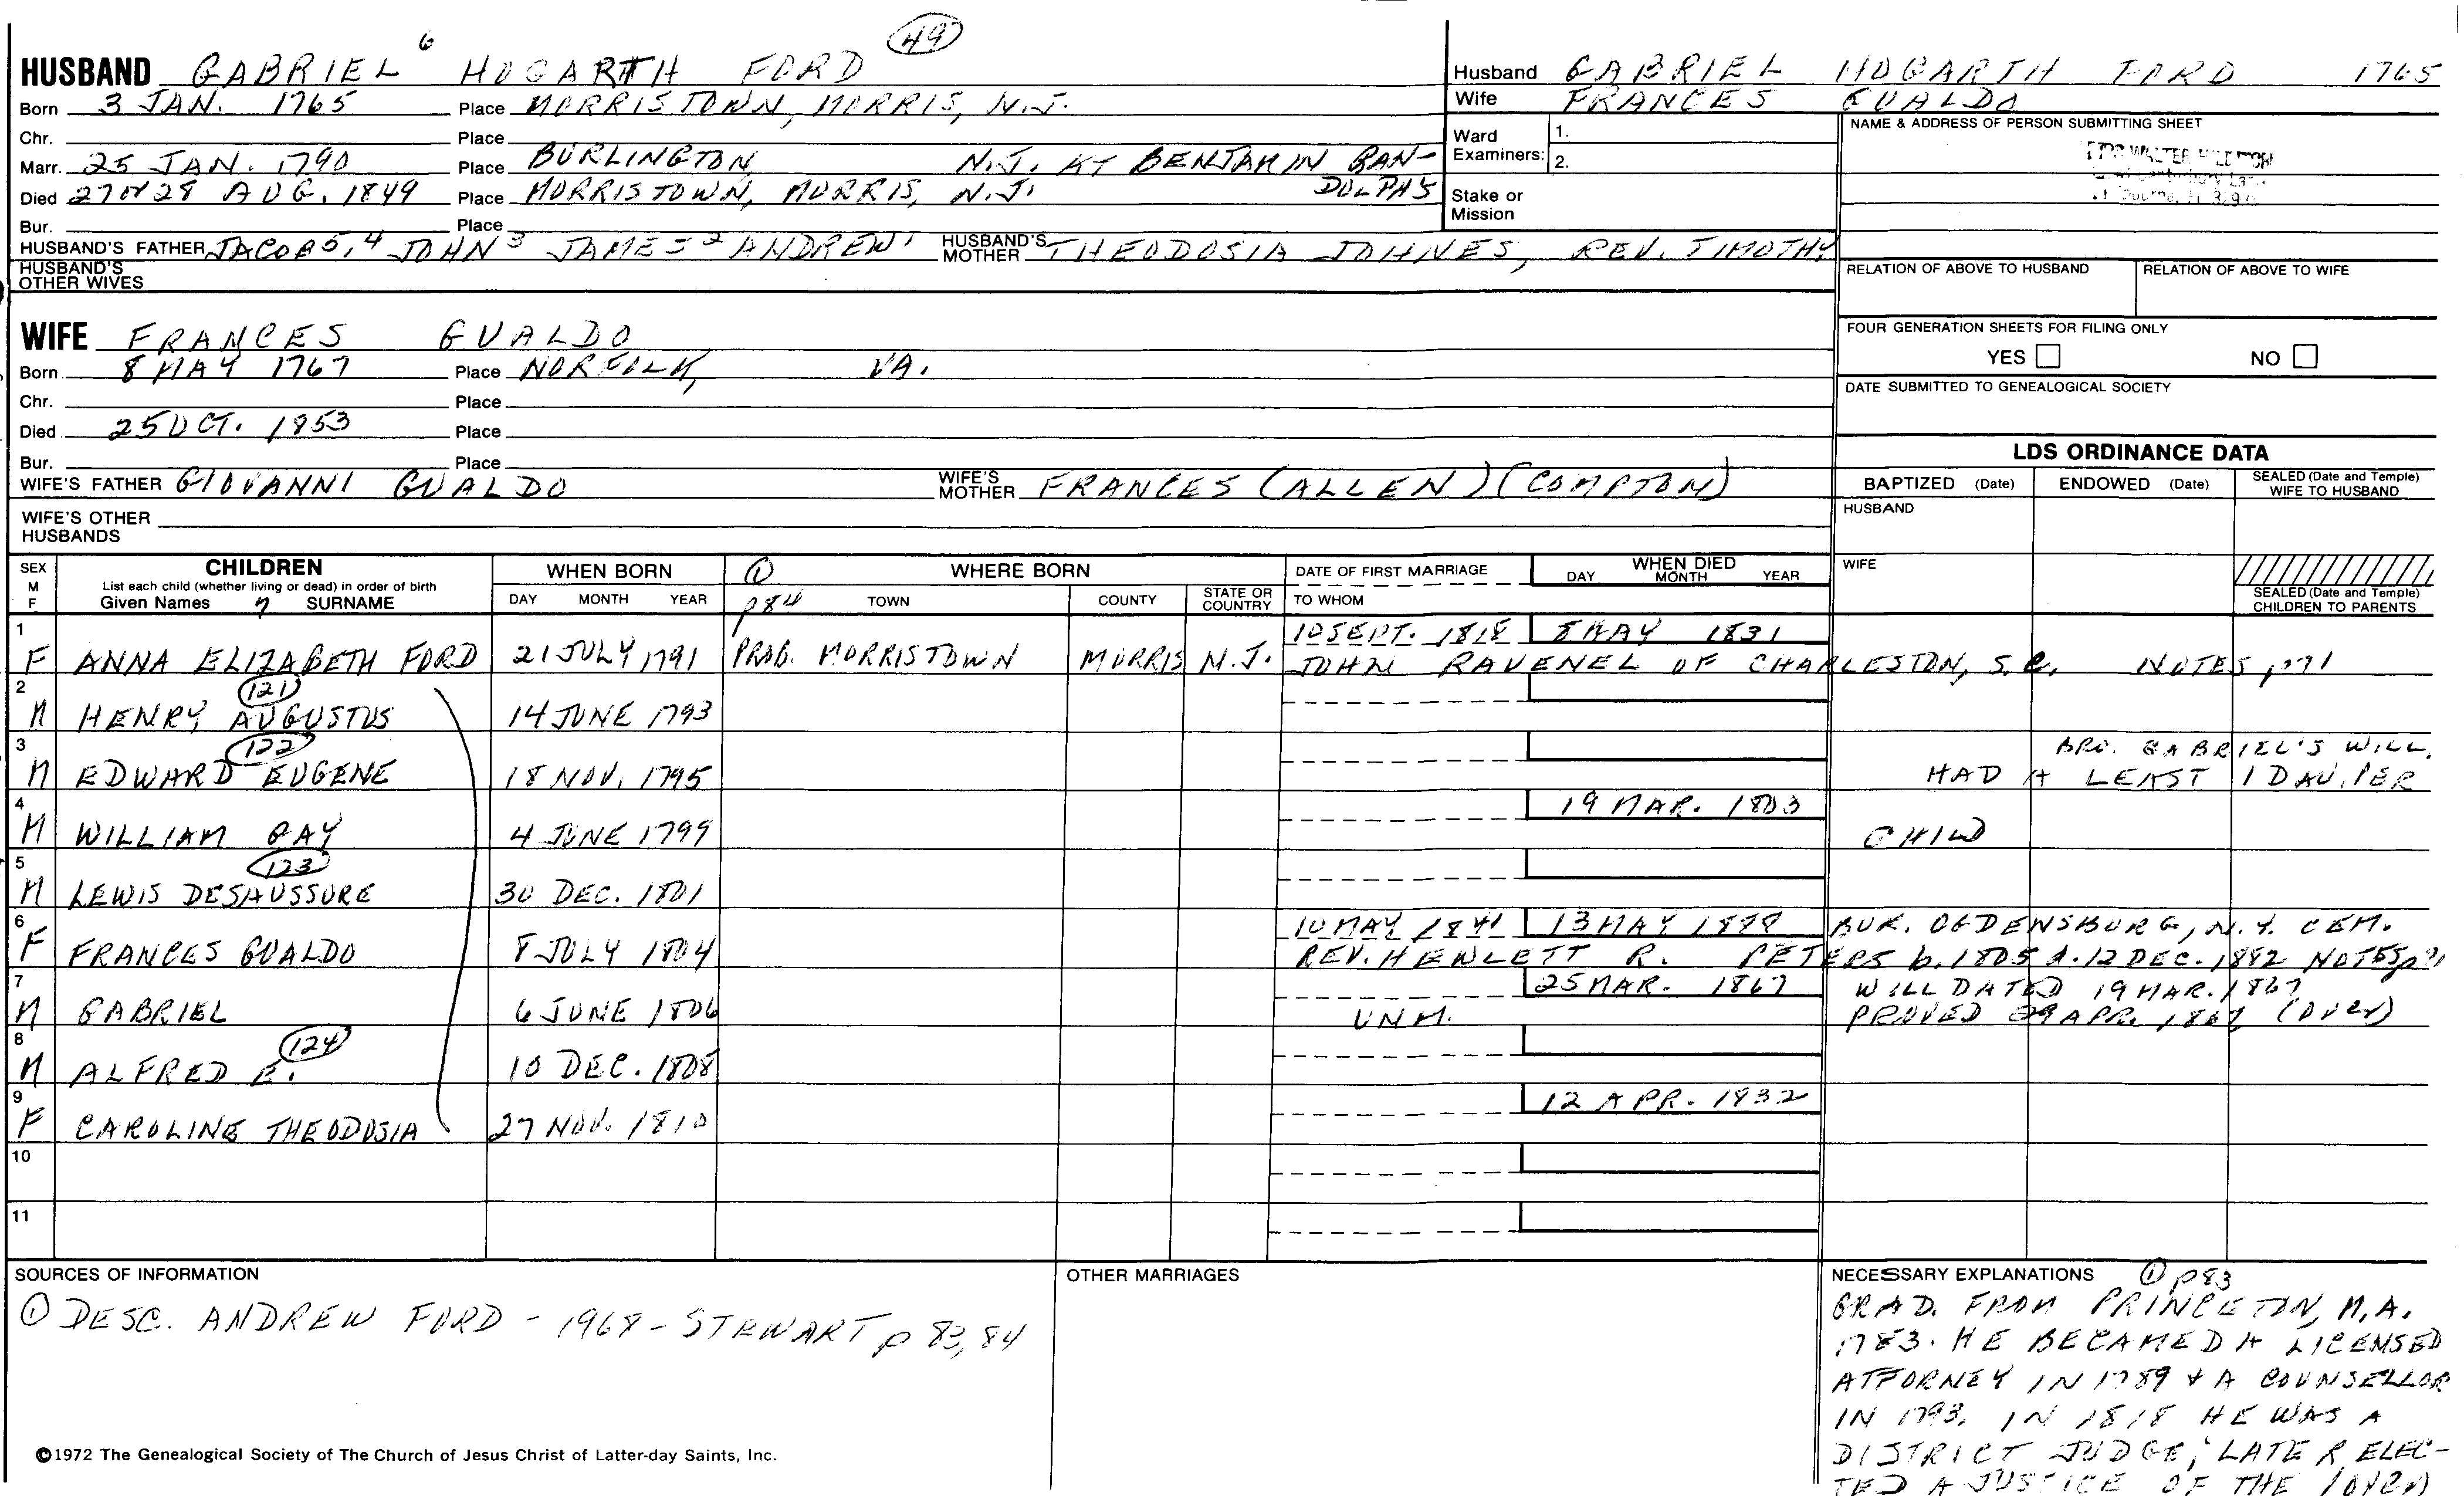 49
HUSBAND GABRIEL 6 HOGARTH FORD
Born 3 JAN. 1765 Place MORRISTOWN, MORRIS, N.J.
Chr. Place
Marr. 25 JAN. 1790 Place BURLINGTON, N.J. AT BENJAMIN RAN-
DOLPHS
Died 27 or 28 AUG. 1849 Place MORRISTOWN, MORRIS, N.J.
Bur. Place
HUSBAND'S FATHER JACOB 5,4 JOHN 3 JAMES 2 ANDREW 1 HUSBAND'S MOTHER THEODOSIA JOHNES, REV. TIMOTHY
HUSBAND'S OTHER WIVES
Husband GABRIEL HOGARTH FORD 1765
Wife FRANCES GUALDO
Ward Examiners: 1.
2.
Stake or Mission
NAME & ADDRESS OF PERSON SUBMITTING SHEET
WALTER
RELATION OF ABOVE TO HUSBAND RELATION OF ABOVE TO WIFE
FOUR GENERATION SHEETS FOR FILING ONLY
YES NO
DATE SUBMITTED TO GENEALOGICAL SOCIETY
WIFE FRANCES GUALDO
Born 8 MAY 1767 Place NORFOLK, VA.
Chr. Place
Died 25 OCT. 1853 Place
Bur. Place
WIFE'S FATHER GIOVANNI GUALDO WIFE'S MOTHER FRANCES (ALLEN) (COMPTON)
WIFE'S OTHER HUSBANDS
LDS ORDINANCE DATA
BAPTIZED (Date) ENDOWED (Date) SEALED (Date and Temple) WIFE TO HUSBAND
HUSBAND
WIFE
SEALED (Date and Temple) CHILDREN TO PARENTS
SEX M F
CHILDREN
List each child (whether living or dead) in order of birth
Given Names 7 SURNAME
WHEN BORN
DAY MONTH YEAR
① p84
WHERE BORN
TOWN COUNTY STATE OR COUNTRY
DATE OF FIRST MARRIAGE
TO WHOM
WHEN DIED
DAY MONTH YEAR
1 10 SEPT. 1818 8 MAY 1831
F ANNA ELIZABETH FORD 21 JULY 1791 PROB. MORRISTOWN MORRIS N.J. JOHN RAVENEL OF CHARLESTON, S.C. NOTES p71
2 121
M HENRY AUGUSTUS 14 JUNE 1793
3 122 BRO. GABRIEL'S WILL.
M EDWARD EUGENE 18 NOV. 1795 HAD A LEAST 1 DAU. PER
4 19 MAR. 1803
M WILLIAM GAY 4 JUNE 1799 CHILD
5 123
M LEWIS DESAUSSURE 30 DEC. 1801
6 10 MAY 1841 13 MAY 1888 BUR. OGDENSBURG, N.Y. CEM.
F FRANCES GUALDO 8 JULY 1804 REV. HEWLETT R. PETERS b. 1805 d. 12 DEC. 1882 NOTES p71
7 25 MAR. 1867 WILL DATED 19 MAR. 1867
M GABRIEL 6 JUNE 1806 UNM. PROVED 29 APR. 1867 (OVER)
8 124
M ALFRED E. 10 DEC. 1808
9 12 APR. 1832
F CAROLINE THEODOSIA 27 NOV. 1810
10
11
SOURCES OF INFORMATION
① DESC. ANDREW FORD - 1968 - STEWART p 83, 84
OTHER MARRIAGES
NECESSARY EXPLANATIONS ① p83
GRAD. FROM PRINCETON, M.A.
1783. HE BECAMED A LICENSED
ATTORNEY IN 1789 & A COUNSELLOR
IN 1793. IN 1818 HE WAS A
DISTRICT JUDGE; LATER ELEC-
TED A JUSTICE OF THE (OVER)
©1972 The Genealogical Society of The Church of Jesus Christ of Latter-day Saints, Inc.